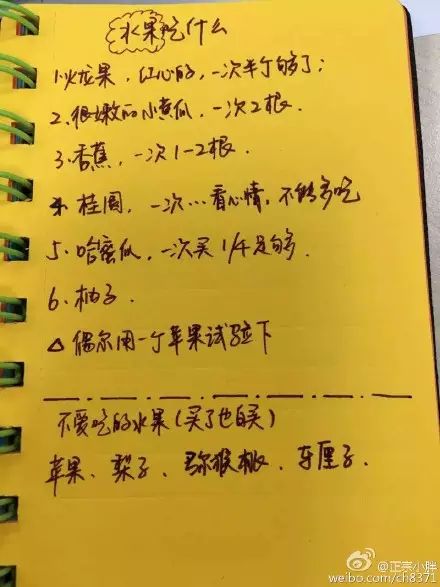 水果吃什么
1.火龙果，红心的，一次半个够了；
2.很嫩的小黄瓜，一次2根．
3.香蕉，一次1-2根．
4 桂圆，一次…看心情，不能多吃
5.哈密瓜，一次买1/4足够．
6.柚子．
△偶尔用一个苹果试验下
不爱吃的水果(买了也白买)
苹果、梨子、弥猴桃、车厘子．
@正宗小胖
weibo.com/ch8371